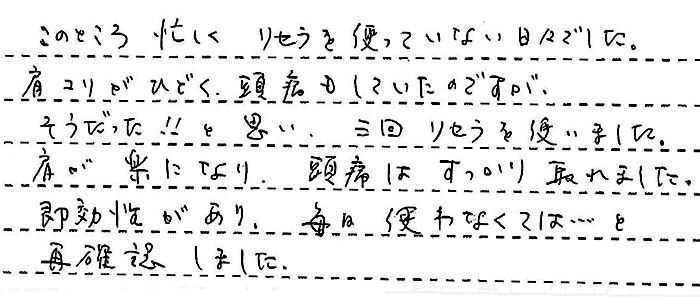 このところ 忙しく リセラを使っていない日々でした。
肩コリがひどく、頭痛もしていたのですが、
そうだった!!と思い、三回リセラを使いました。
肩が楽になり、頭痛はすっかり取れました。
即効性があり、毎日使わなくては…と
再確認しました。